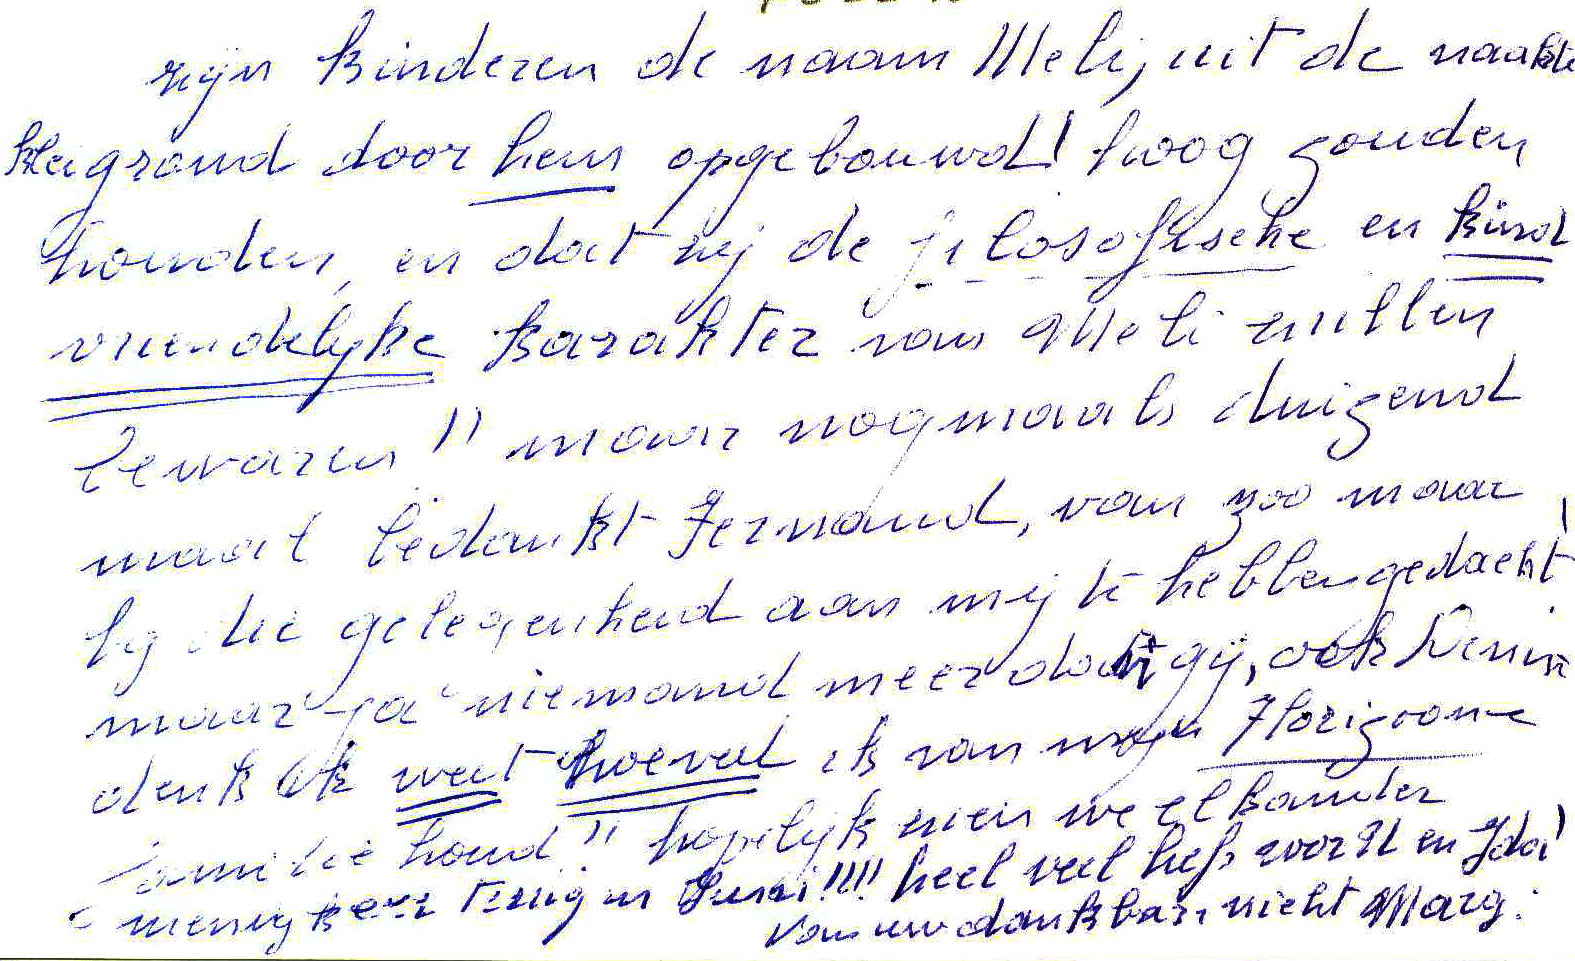 zijn kinderen de naam Meli, uit de naakte
kleigrond door hem opgebouwd! hoog zouden
houden, en dat zij de filosofische en kind
vriendelijke karakter van Meli zullen
bewaren" maar nogmaals duizend
maal bedankt Fernand, van zoo maar
bij die gelegenheid aan mij te hebben gedacht!
maar ja niemand meer dan gij, ook Denise
denk ik weet hoeveel ik van mijn Florizoone
familie houd" hopelijk zien we elkander
menig keer terug in Juni!!!! heel veel liefs voor U en Ida!
van uw dankbare nicht Marg.